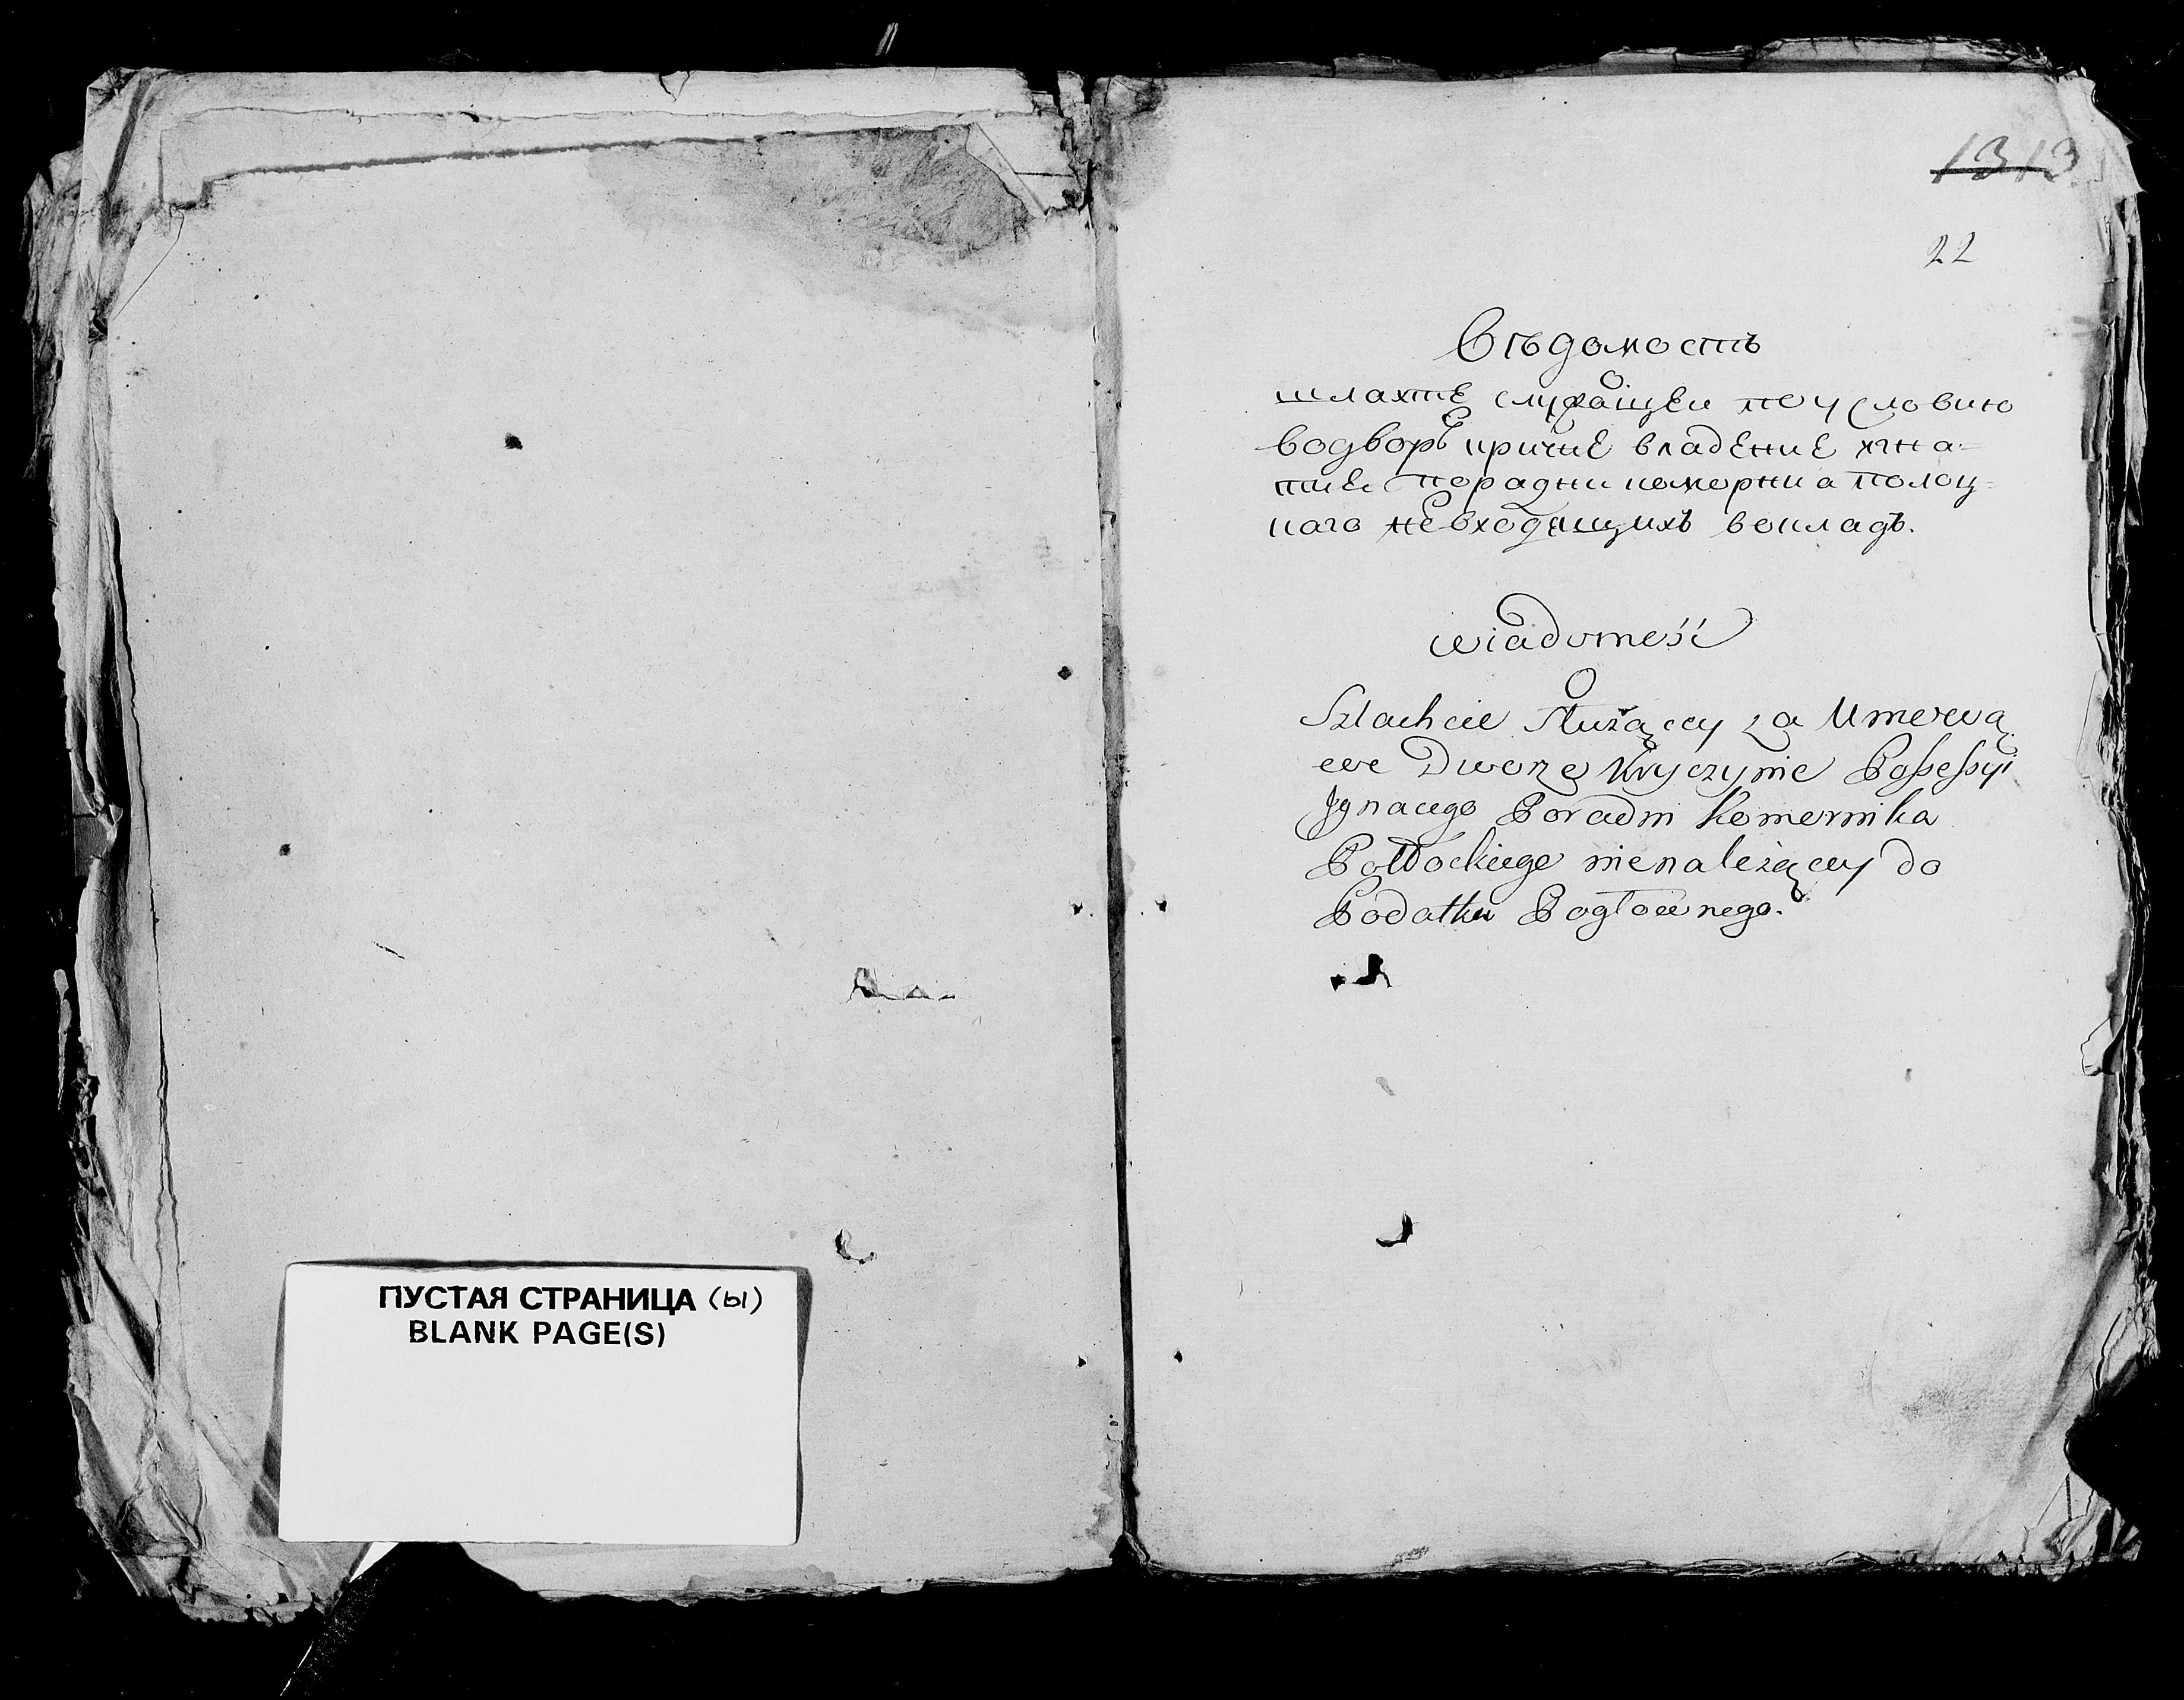 ПУСТАЯ СТРАНИЦА (ы)
BLANK PAGE(S)
1313
22
Вѣдомость
О
шлахтѣ служащеи поусловию
водворѣ кричие владение игна-
тие порадни коморниа полоц-
каго невходящихъ вокладъ.
wiadomość
O
Szlachcie Służącey za Umową
we Dworze Kryczynie Possessyi
Ignacego Poradni Komornika
Połłockiego nienależącey do
Podatku Pogłownego.